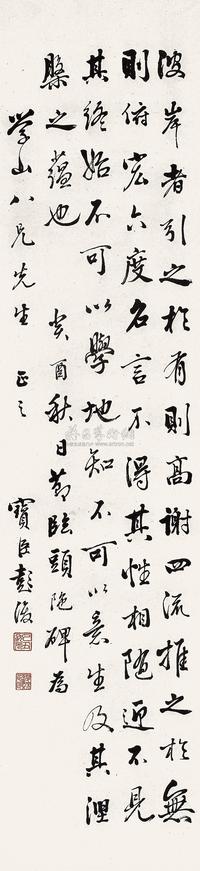 彼岸者引之於有則高謝四流推之於無
則俯宏六度名言不得其性相隨迎不見
其終始不可以學地知不可以意生及其涅
槃之蘊也 癸酉秋日節臨頭陀碑為
学山八兄先生 正之 寶臣彭浚